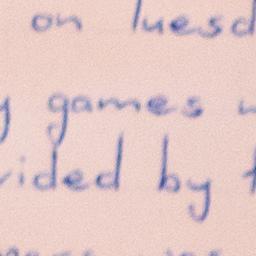 on Tuesd
y games
vided by